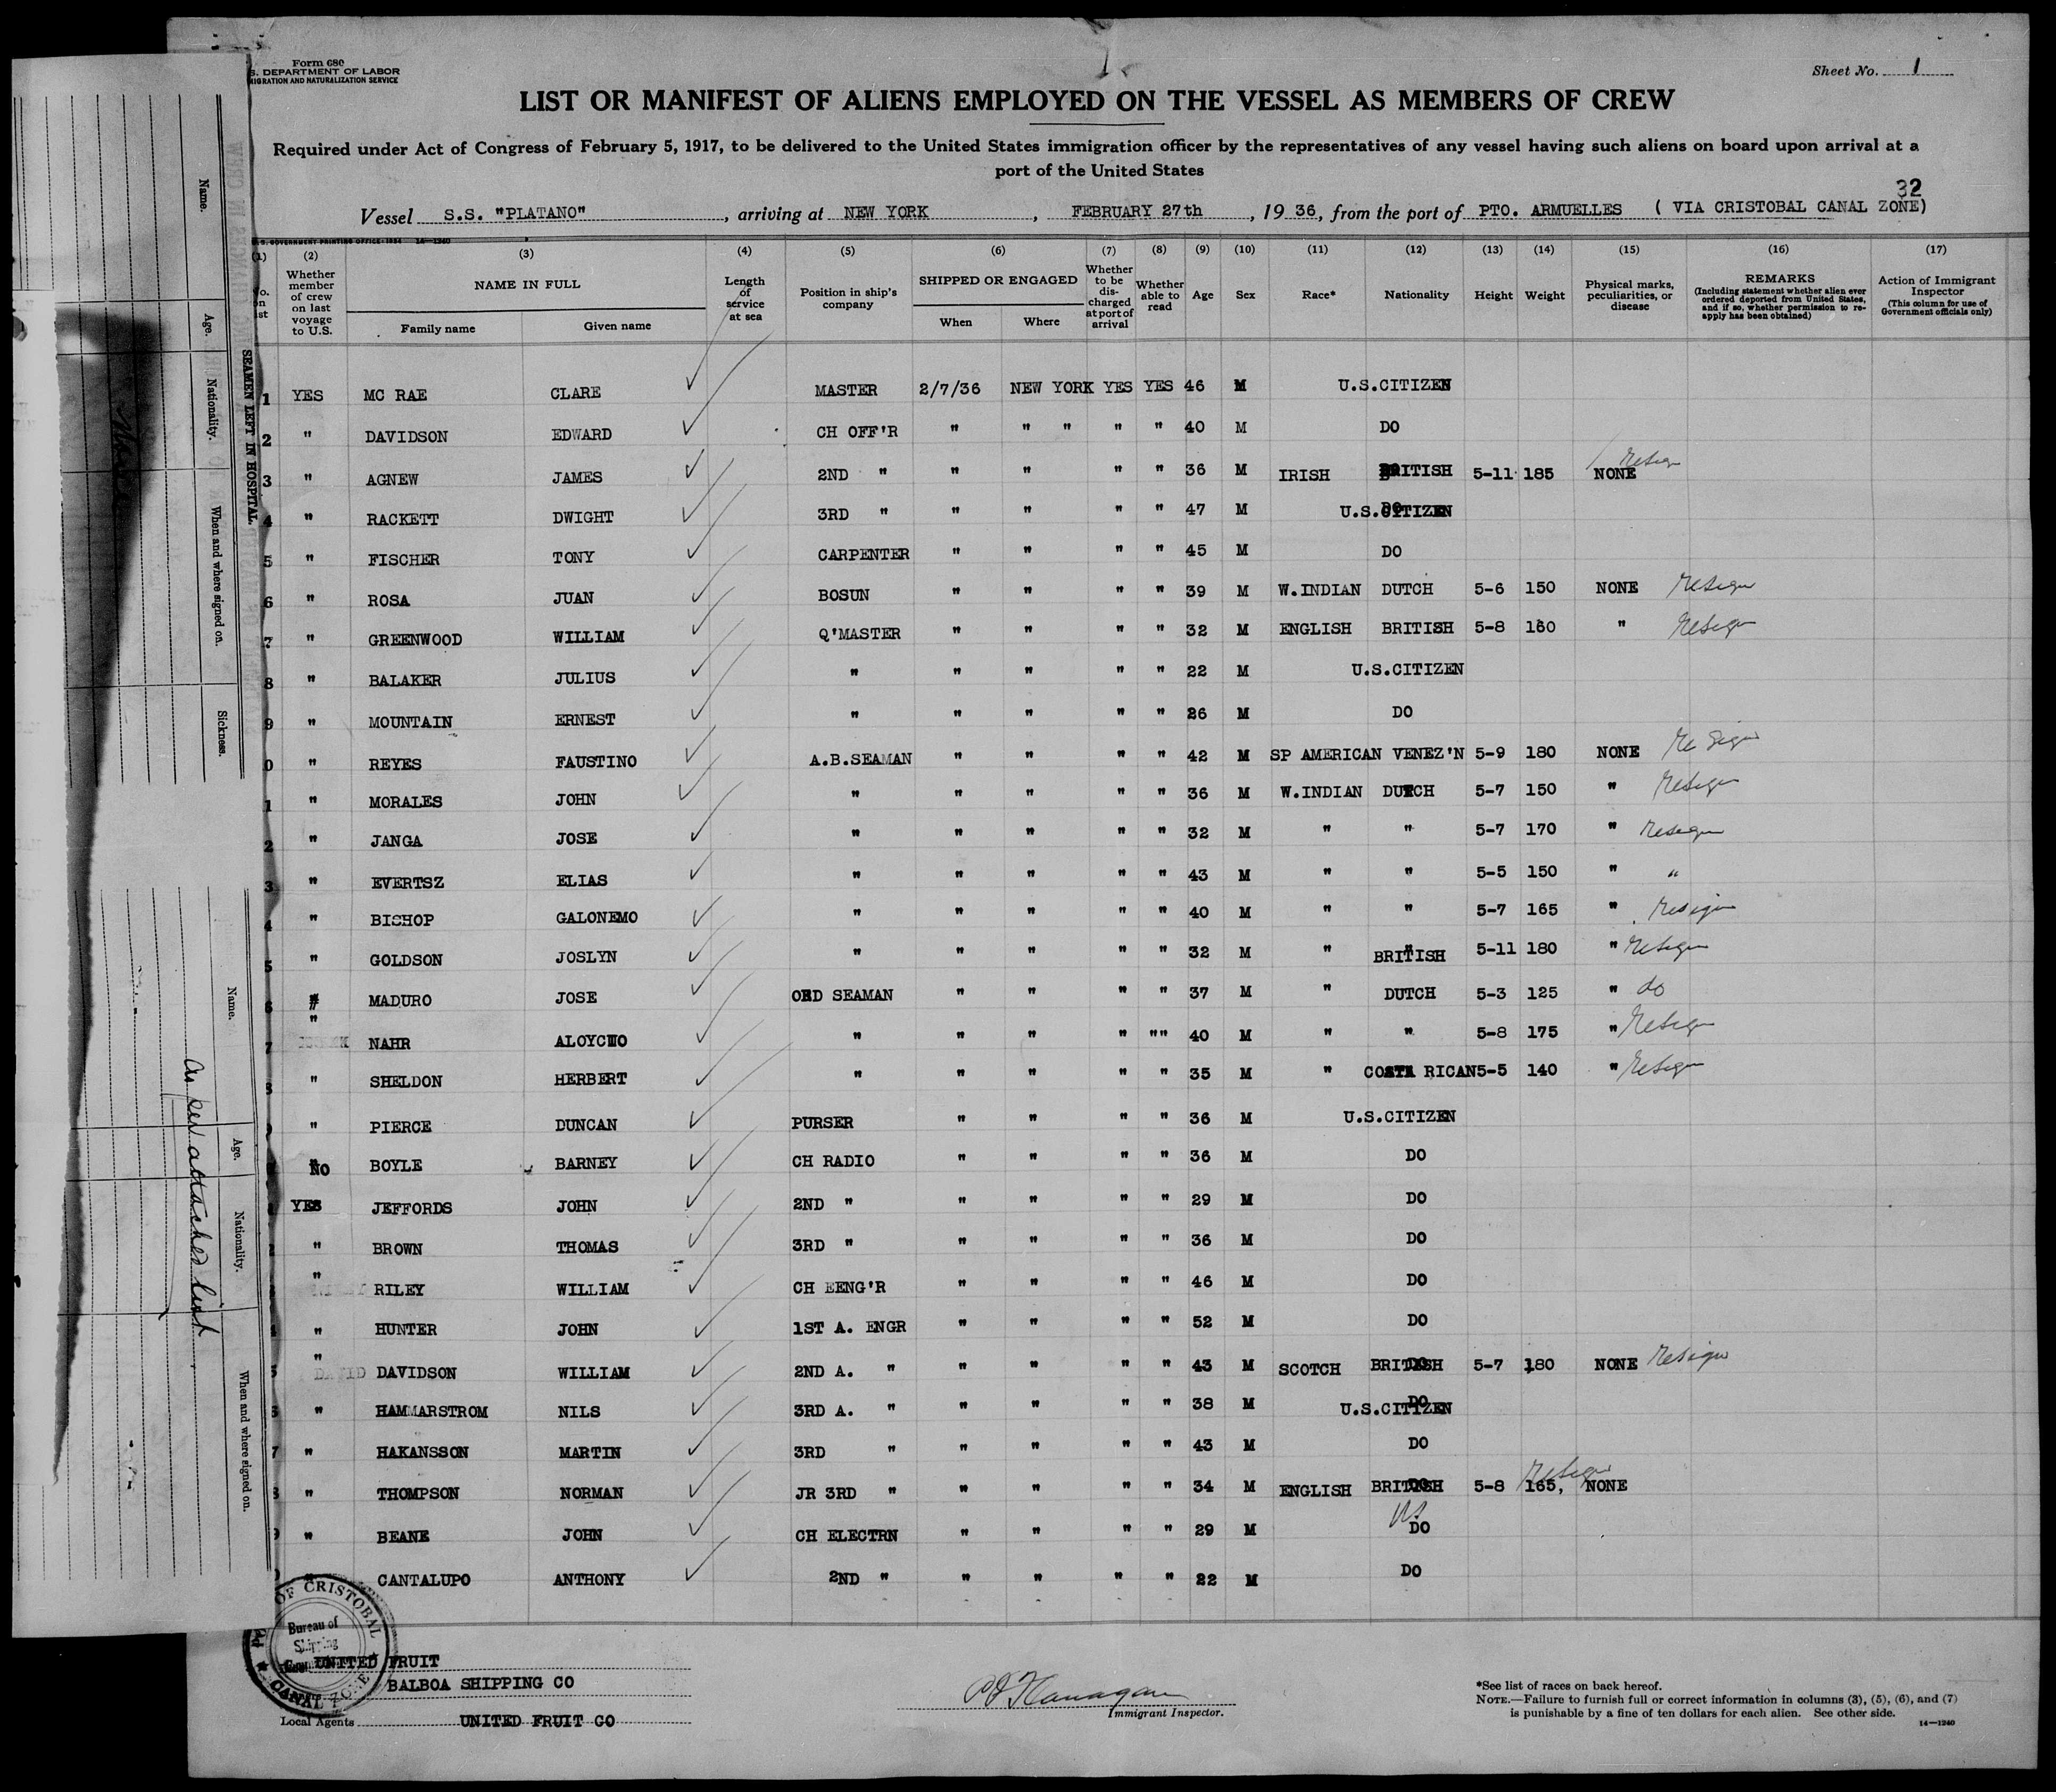 Form 680
S. DEPARTMENT OF LABOR
IGRATION AND NATURALIZATION SERVICE
Sheet No. 1
LIST OR MANIFEST OF ALIENS EMPLOYED ON THE VESSEL AS MEMBERS OF CREW
Required under Act of Congress of February 5, 1917, to be delivered to the United States immigration officer by the representatives of any vessel having such aliens on board upon arrival at a
port of the United States
32
Vessel S.S. "PLATANO", arriving at NEW YORK, FEBRUARY 27th, 1936, from the port of PTO. ARMUELLES ( VIA CRISTOBAL CANAL ZONE)
S. GOVERNMENT PRINTING OFFICE: 1934 14—1240
(1) (2) (3) (4) (5) (6) (7) (8) (9) (10) (11) (12) (13) (14) (15) (16) (17)
No. on list
Whether member of crew on last voyage to U.S.
NAME IN FULL
Family name
Given name
Length of service at sea
Position in ship's company
SHIPPED OR ENGAGED
When
Where
Whether to be discharged at port of arrival
Whether able to read
Age
Sex
Race*
Nationality
Height
Weight
Physical marks, peculiarities, or disease
REMARKS
(Including statement whether alien ever ordered deported from United States, and if so, whether permission to reapply has been obtained)
Action of Immigrant Inspector
(This column for use of Government officials only)
1 YES MC RAE CLARE MASTER 2/7/36 NEW YORK YES YES 46 M U.S.CITIZEN
2 " DAVIDSON EDWARD CH OFF'R " " " " " 40 M DO
3 " AGNEW JAMES 2ND " " " " " 36 M IRISH BRITISH 5-11 185 NONE Resign
4 " RACKETT DWIGHT 3RD " " " " " 47 M U.S.CITIZEN
5 " FISCHER TONY CARPENTER " " " " 45 M DO
6 " ROSA JUAN BOSUN " " " " 39 M W.INDIAN DUTCH 5-6 150 NONE Resign
7 " GREENWOOD WILLIAM Q'MASTER " " " " 32 M ENGLISH BRITISH 5-8 160 " Resign
8 " BALAKER JULIUS " " " " " 22 M U.S.CITIZEN
9 " MOUNTAIN ERNEST " " " " " 26 M DO
0 " REYES FAUSTINO A.B.SEAMAN " " " " 42 M SP AMERICAN VENEZ'N 5-9 180 NONE Re Sign
1 " MORALES JOHN " " " " " 36 M W.INDIAN DUTCH 5-7 150 " Resign
2 " JANGA JOSE " " " " " 32 M " " 5-7 170 " Resign
3 " EVERTSZ ELIAS " " " " " 43 M " " 5-5 150 " "
4 " BISHOP GALONEMO " " " " " 40 M " " 5-7 165 " Resign
5 " GOLDSON JOSLYN " " " " " 32 M " BRITISH 5-11 180 " Resign
6 " MADURO JOSE ORD SEAMAN " " " " 37 M " DUTCH 5-3 125 " do
7 " NAHR ALOYCIIO " " " " "" 40 M " " 5-8 175 " Resign
8 " SHELDON HERBERT " " " " " 35 M " COSTA RICAN 5-5 140 " Resign
" PIERCE DUNCAN PURSER " " " " 36 M U.S.CITIZEN
No BOYLE BARNEY CH RADIO " " " " 36 M DO
YES JEFFORDS JOHN 2ND " " " " " 29 M DO
" BROWN THOMAS 3RD " " " " " 36 M DO
" RILEY WILLIAM CH EENG'R " " " " 46 M DO
" HUNTER JOHN 1ST A. ENGR " " " " 52 M DO
5 " DAVIDSON WILLIAM 2ND A. " " " " " 43 M SCOTCH BRITISH 5-7 180 NONE Resign
" HAMMARSTROM NILS 3RD A. " " " " " 38 M U.S.CITIZEN
7 " HAKANSSON MARTIN 3RD " " " " " 43 M DO
" THOMPSON NORMAN JR 3RD " " " " " 34 M ENGLISH BRITISH 5-8 165, NONE Resign
" BEANE JOHN CH ELECTRN " " " " 29 M US DO
" CANTALUPO ANTHONY 2ND " " " " " 22 M DO
OF CRISTOBAL
Bureau of
Shipping
CANAL ZONE
UNITED FRUIT
BALBOA SHIPPING CO
Local Agents UNITED FRUIT CO
Immigrant Inspector.
*See list of races on back hereof.
NOTE.—Failure to furnish full or correct information in columns (3), (5), (6), and (7)
is punishable by a fine of ten dollars for each alien. See other side.
14—1240
SEAMEN LEFT IN HOSPITAL
Name.
Age.
Nationality.
When and where signed on.
Sickness.
Name.
Age.
Nationality.
When and where signed on.
As per attached list